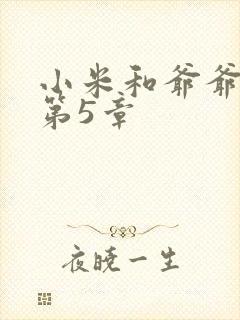 小米和爷爷
第5章
夜晓一生